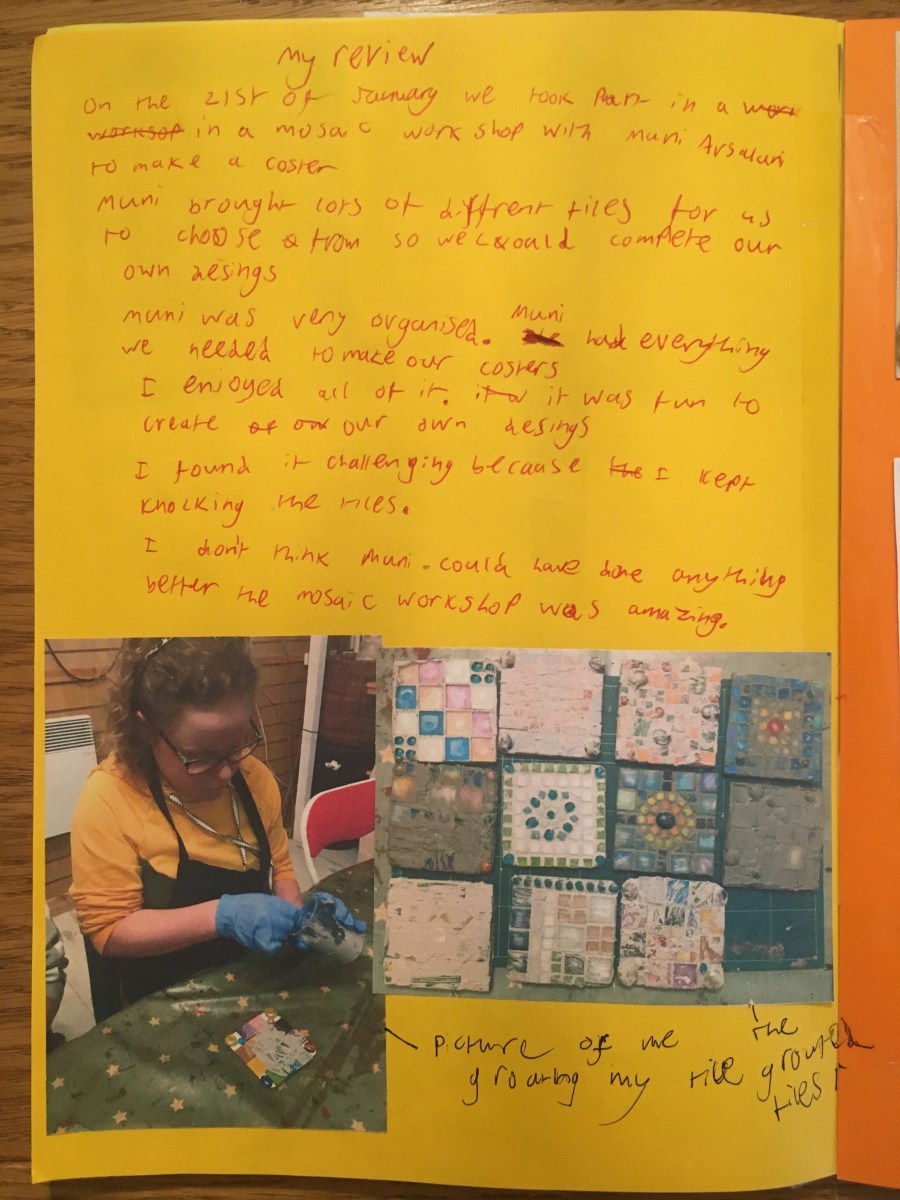 My review
On the 21st of January we took Part in a wor
worksop in a mosaic work shop with Muni Arsalani
to make a coster
Muni brought lots of diffrent tiles for us
to choose from so we could complete our
own desings
muni was very organised. Muni had everything
we needed to make our costers
I enjoyed all of it. it was fun to
create our own desings
I found it challenging because I kept
knocking the tiles.
I don't think Muni could have done anything
better the mosaic workshop was amazing.
Picture of me
grouting my tile
the
grouted
tiles